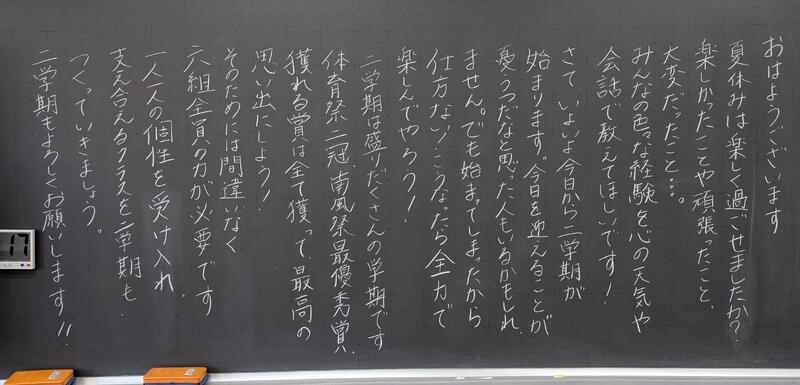 おはようございます
夏休みは楽しく過ごせましたか?
楽しかったことや頑張ったこと、
大変だったこと…。
みんなの色々な経験を心の天気や
会話で教えてほしいです!
さて、いよいよ今日から二学期が
始まります。今日を迎えることが
憂うつだなと思った人もいるかもしれ
ません。でも始まってしまったから
仕方ない!こうなったら全力で
楽しんでやろう!
二学期は盛りだくさんの学期です
体育祭二冠、南風祭最優秀賞、
獲れる賞は全て獲って、最高の
思い出にしよう!
そのためには間違いなく
六組全員の力が必要です
一人一人の個性を受け入れ、
支え合えるクラスを二学期も、
つくっていきましょう。
二学期もよろしくお願いします!!
17